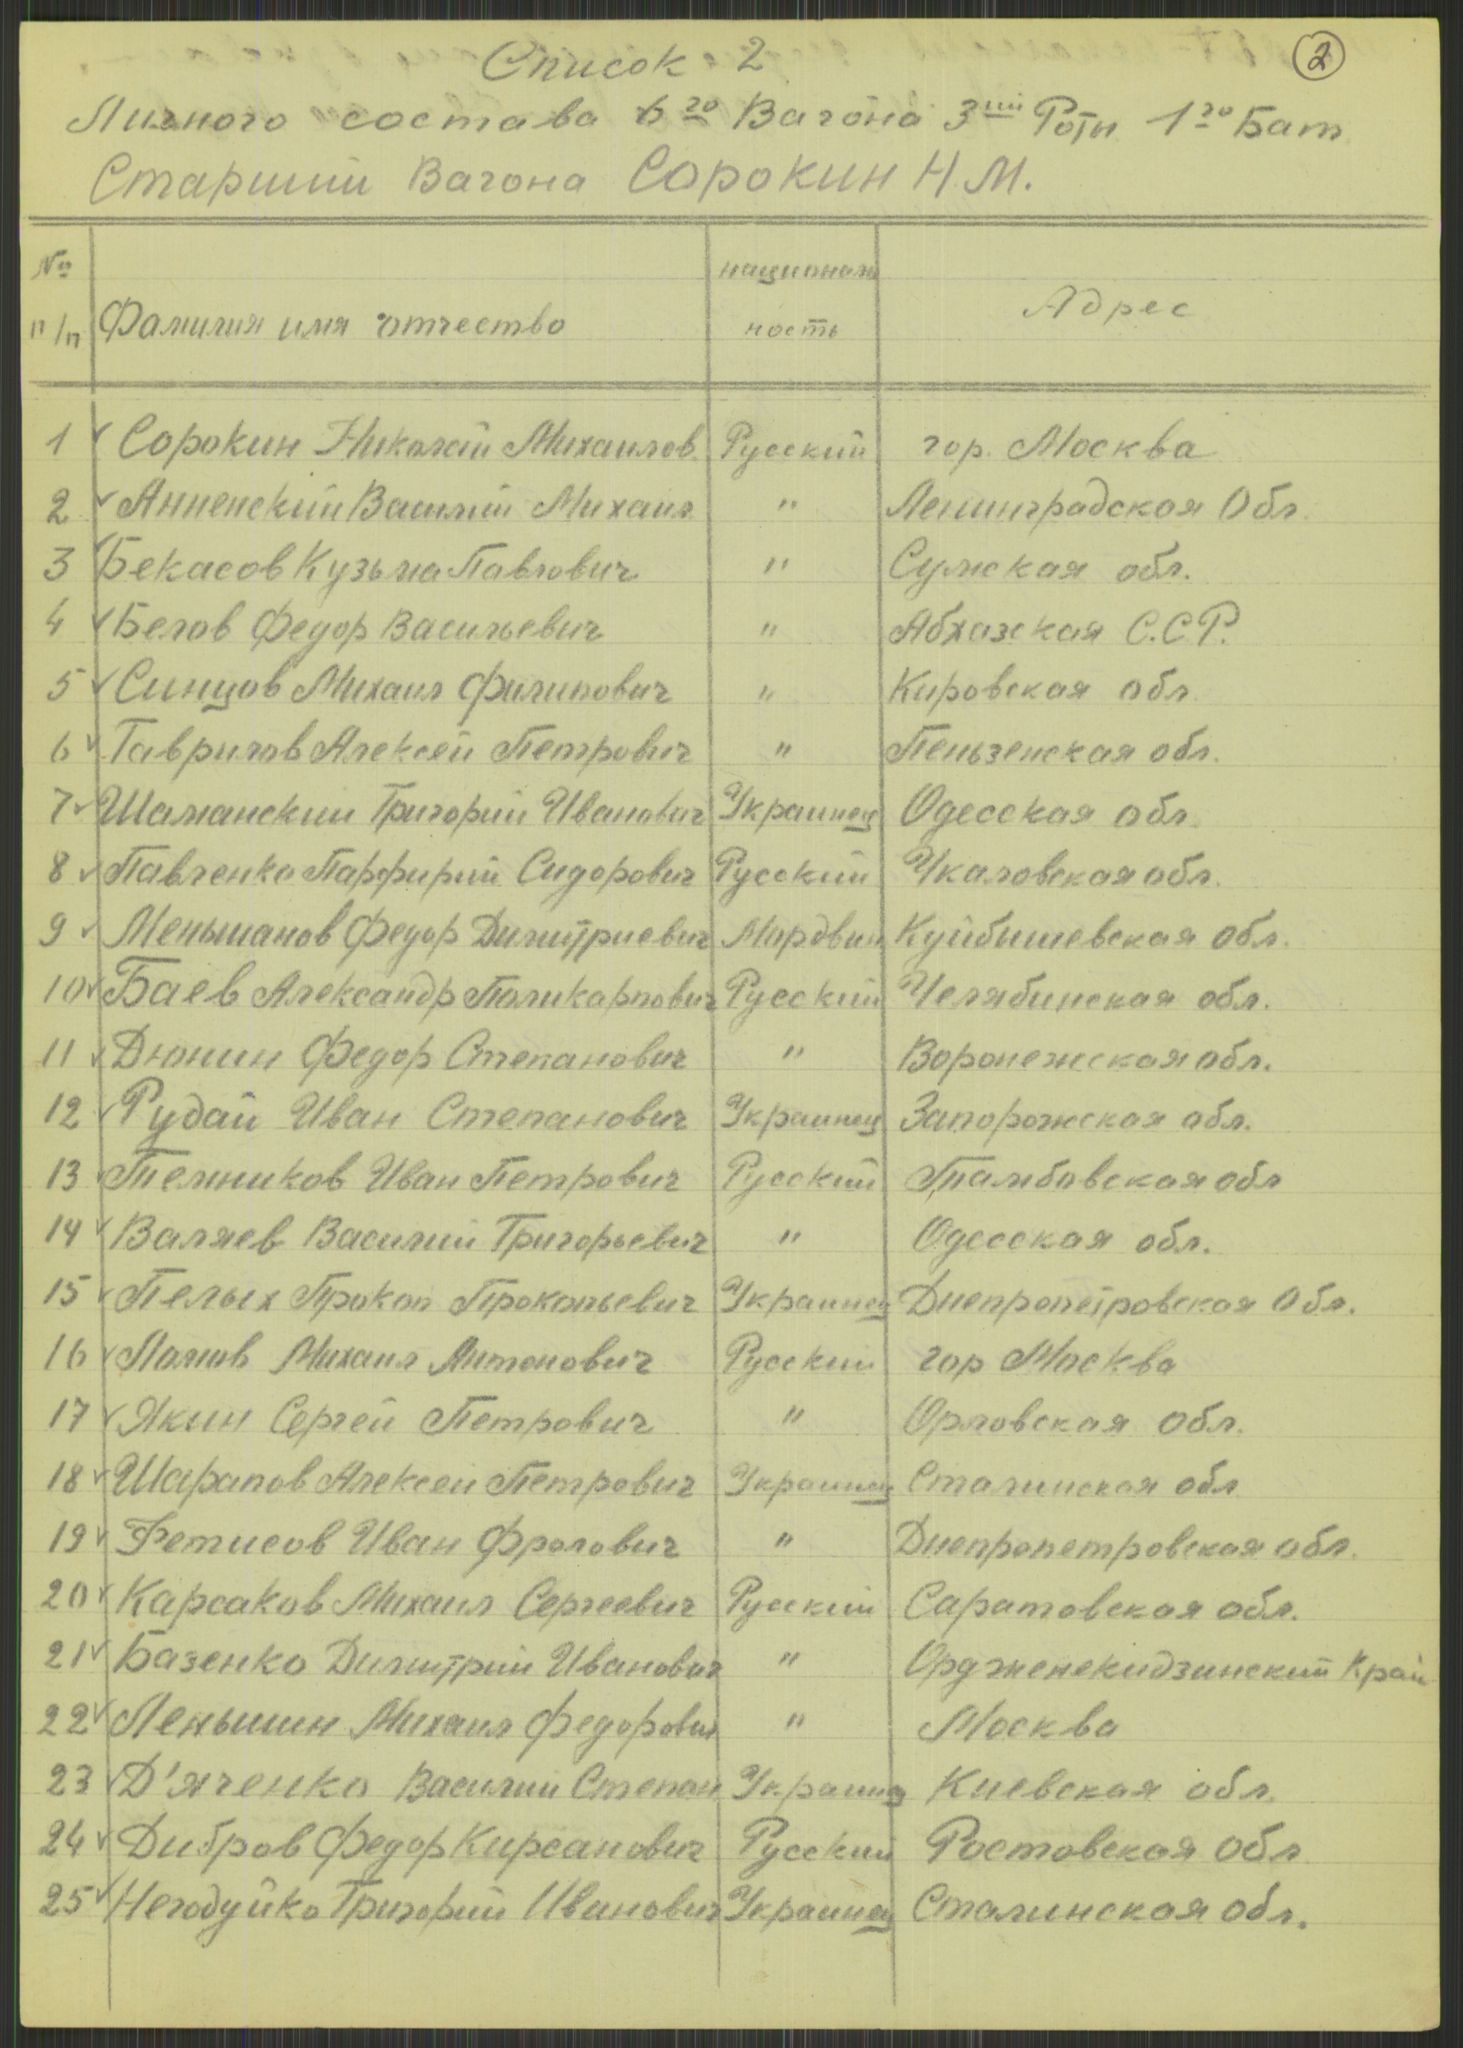 Список 2
2
Личного состава 6го Вагона 3ий Роты 1го Бат
Старший Вагона Сорокин Н.М.
№ п/п Фамилия имя отчество националь ность Адрес
1 Сорокин Николай Михаилов Русский гор. Москва
2 Анненский Василий Михаил " Ленинградская Обл.
3 Бекасов Кузьма Павлович " Сумская обл.
4 Белов Федор Васильевич " Абхазская С.С.Р.
5 Синцов Михаил Филипович " Кировская обл
6 Гаврилов Алексей Петрович " Пеньзенская обл.
7 Шаманский Григорий Иванович Украинец Одесская обл.
8 Павленко Парфирий Сидорович Русский Чкаловская обл.
9 Меньшанов Федор Димитриевич Мордвин Куйбишевская обл.
10 Баев Александр Поликарпович Русский Челябинская обл.
11 Дюнин Федор Степанович " Воронежская обл.
12 Рудай Иван Степанович Украинец Запорожская обл.
13 Телников Иван Петрович Русский Тамбовская обл
14 Валяев Василий Григорьевич " Одесская обл.
15 Пелых Прокоп Прокопьевич Украинец Днепропетровская Обл.
16 Михаил Антонович Русский гор Москва
17 Якин Сергей Петрович " Орловская обл.
18 Шарапов Алексей Петрович Украинец Сталинская обл
19 Фетисов Иван Фролович " Днепропетровская обл.
20 Карсаков Михаил Сергеевич Русский Саратовская обл.
21 Базенко Димитрий Иванович " Орджненекидзинский Край
22 Леньшин Михаил Федорович " Москва
23 Д'яченко Василий Степан Украинец Киевская обл.
24 Дибров Федор Кирсанович Русский Ростовская Обл
25 Негодуйко Григорий Иванович Украинец Сталинская обл.